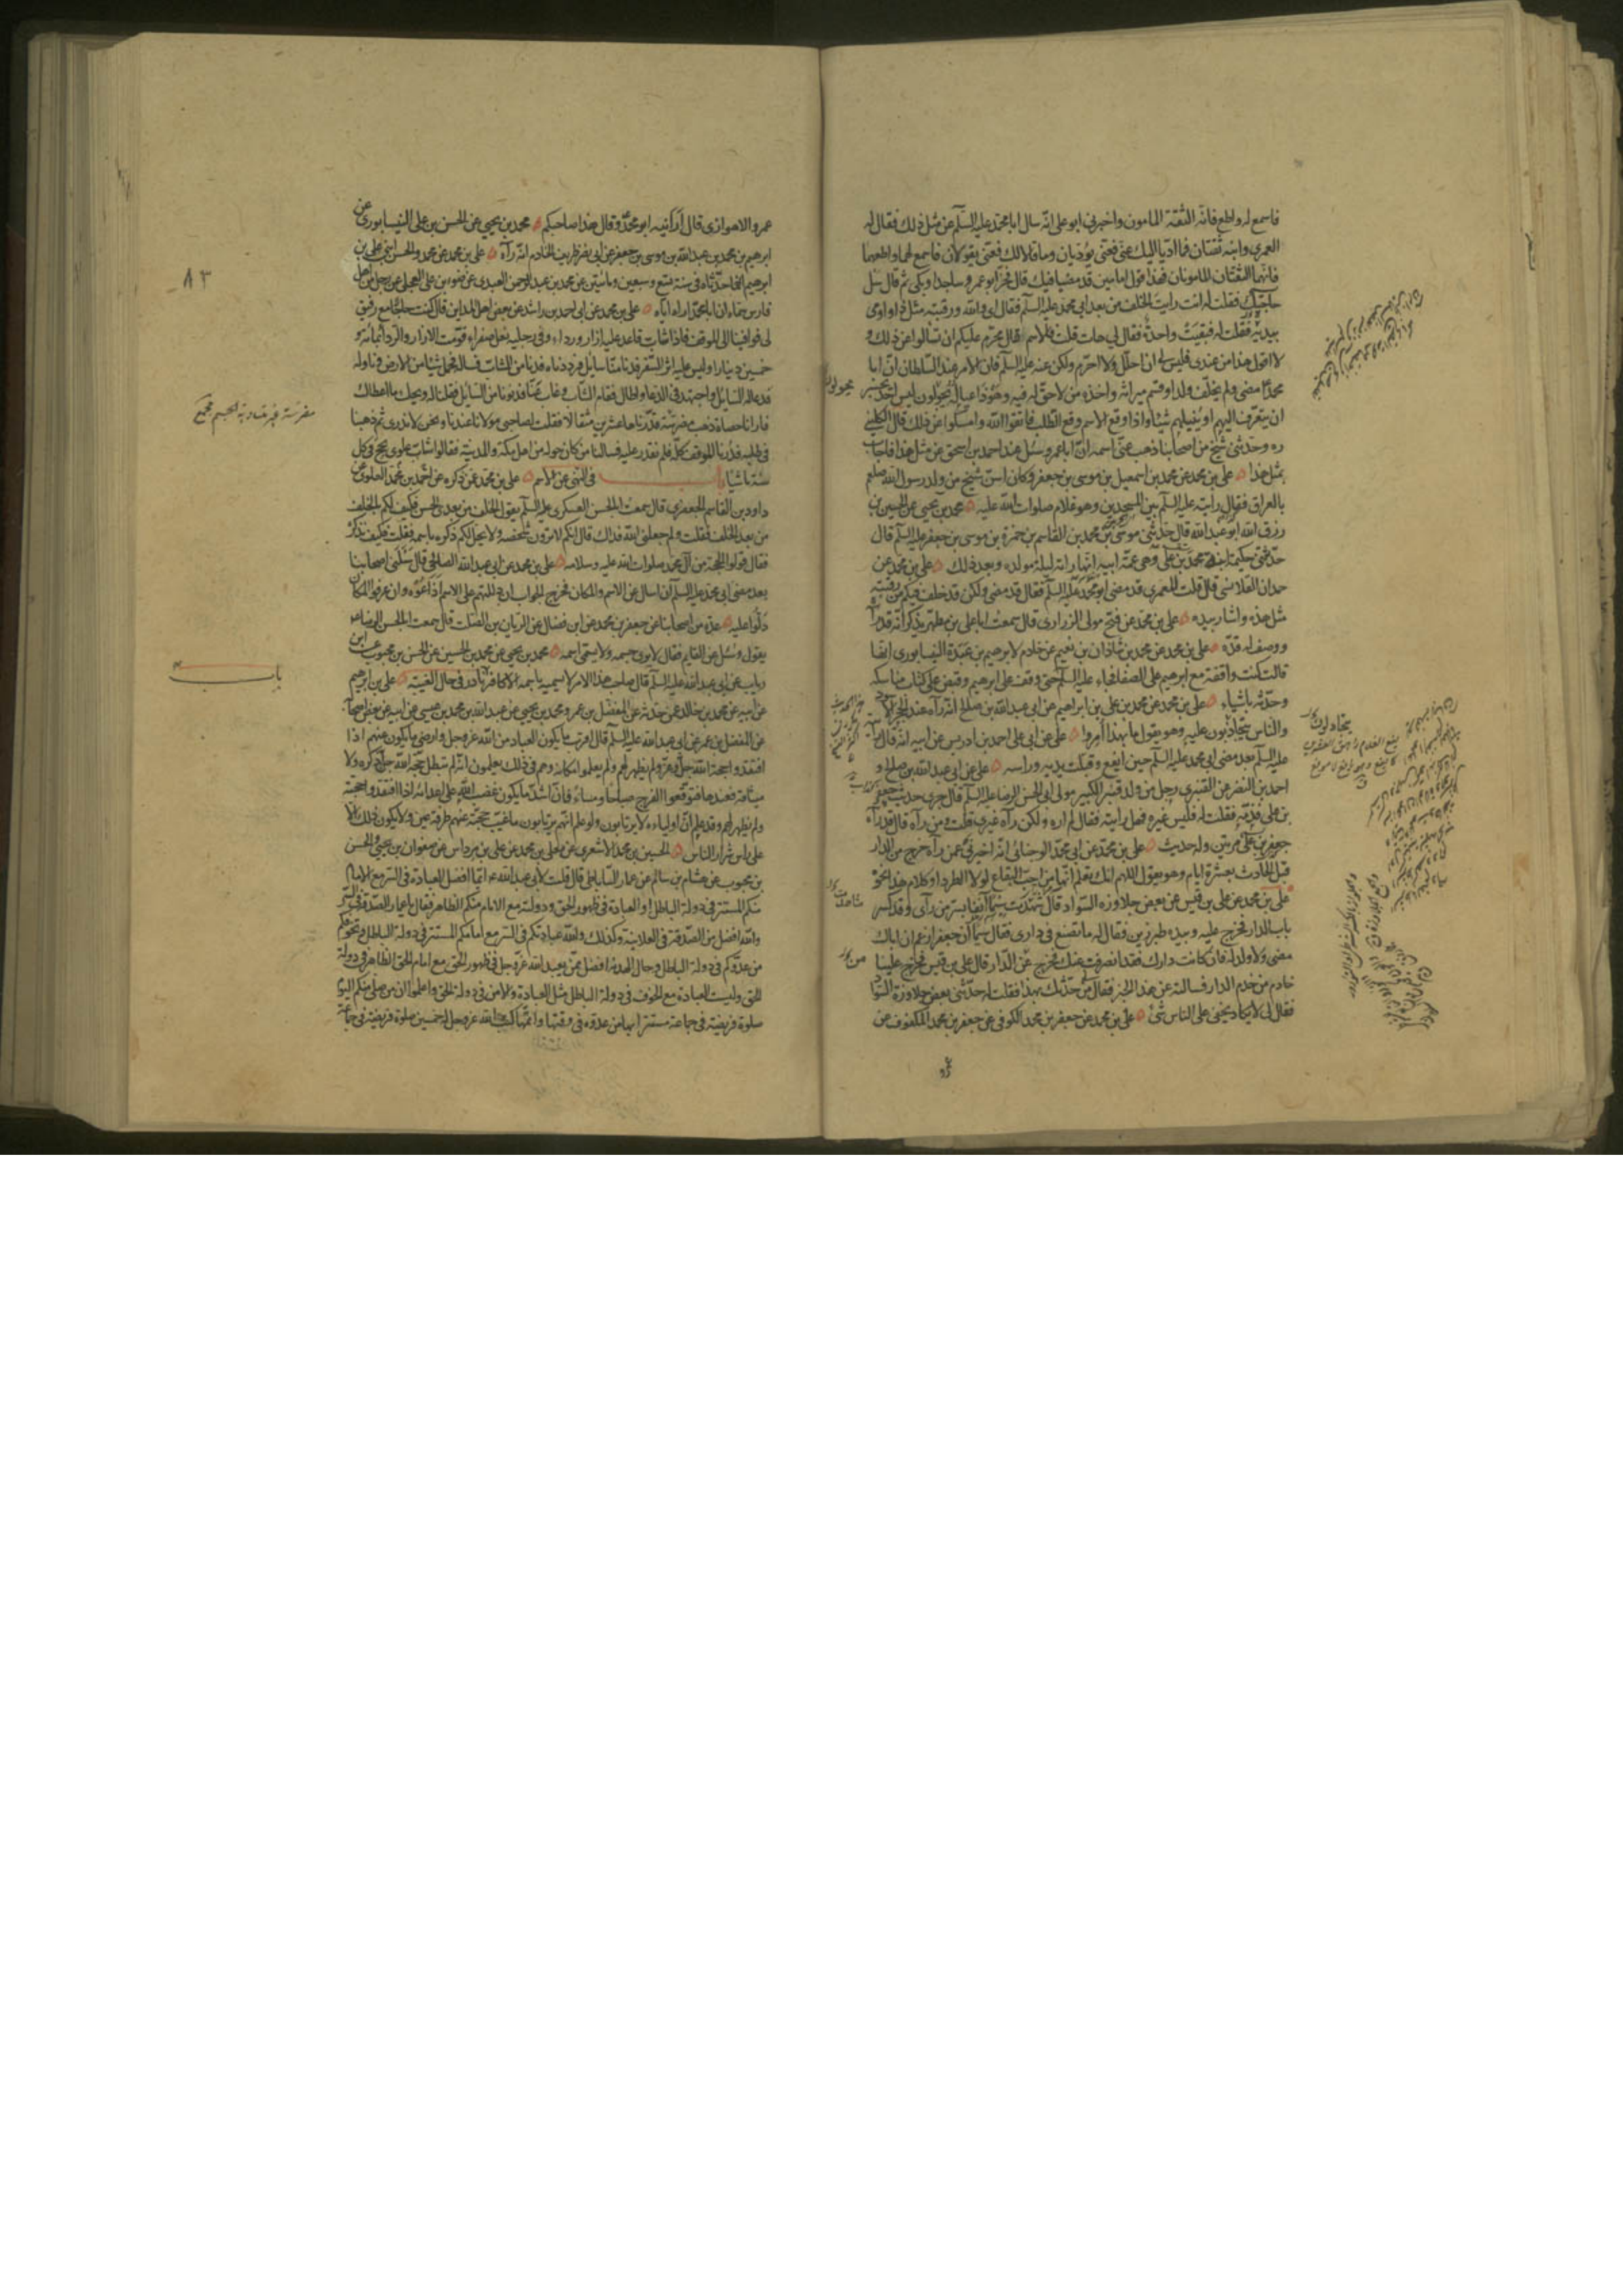 فاسمع له واطع فانه الثقة المامون واخبرني ابو علي انه سال ابا محمد عليه السلم عن مثل ذلك فقال له
العمري وابنه ثقتان فما اديا اليك عني فعني يؤديان وما قالا لك فعني يقولان فاسمع لهما واطعهما
فانهما الثقتان المامونان فهذا قول امامين قد مضيا فيك قال فخر ابو عمرو ساجدا وبكى ثم قال سل
حاجتك فقلت له انت رايت الخلف من بعد ابي محمد عليه السلم فقال اي والله ورقبته مثل ذا واومى
بيديه فقلت له فبقيت واحدة فقال لي هات قلت فالاسم قال محرم عليكم ان تسالوا عن ذلك و
لا اقول هذا من عندي فليس لي ان احلل ولا احرم ولكن عنه عليه السلم فان الامر عند السلطان ان ابا
محمد مضى ولم يخلف ولدا وقسم ميراثه واخذه من لا حق له فيه وهو ذا عياله يجولون ليس احد يجسر
ان يتعرف اليهم او ينيلهم شيئا واذا وقع الاسم وقع الطلب فاتقوا الله وامسكوا عن ذلك قال الكليني
ره وحدثني شيخ من اصحابنا ذهب عني اسمه ان ابا عمرو سئل عند احمد بن اسحق عن مثل هذا فاجاب
بمثل هذا علي بن محمد عن محمد بن اسمعيل بن موسى بن جعفر وكان اسن شيخ من ولد رسول الله صلعم
بالعراق فقال رايته عليه السلم بين المسجدين وهو غلام صلوات الله عليه محمد بن يحيى عن الحسين بن
رزق الله ابو عبد الله قال حدثني موسى بن محمد بن القاسم بن حمزة بن موسى بن جعفر عليه السلم قال
حدثتني حكيمة ابنة محمد بن علي وهي عمة ابيه انها راته ليلة مولده وبعد ذلك علي بن محمد عن
حمدان القلانسي قال قلت للعمري قد مضى ابو محمد عليه السلم فقال قد مضى ولكن قد خلف فيكم من رقبته
مثل هذه واشار بيده علي بن محمد عن فتح مولى الزراري قال سمعت ابا علي بن مطهر يذكر انه قد رآه
ووصف له قده علي بن محمد عن محمد بن شاذان بن نعيم عن خادم لابرهيم بن عبدة النيسابوري انها
قالت كنت واقفة مع ابرهيم على الصفا فجاء عليه السلم حتى وقف على ابرهيم وقبض على كتاب مناسكه
وحدثه باشياء علي بن محمد عن محمد بن علي بن ابراهيم عن ابي عبد الله بن صالح انه رآه عند الحجر الاسود
والناس يتجاذبون عليه وهو يقول ما بهذا امروا علي عن ابي علي احمد بن ادريس عن ابيه انه قال رايته
عليه السلم بعد مضي ابي محمد عليه السلم حين ايفع وقبلت يديه وراسه علي عن ابي عبد الله بن صالح و
احمد بن النضر عن القنبري رجل من ولد قنبر الكبير مولى ابي الحسن الرضا عليه السلم قال جرى حديث جعفر
بن علي فذمه فقلت له فليس غيره فهل رايته فقال لم اره ولكن رآه غيري قلت ومن رآه قال قد رآه
جعفر بن علي مرتين وله حديث علي بن محمد عن ابي محمد الوجناني انه اخبرني عمن رآه خرج من الدار
قبل الحادث بعشرة ايام وهو يقول اللهم انك تعلم انها من احب البقاع لولا الطرد او كلام هذا نحوه
علي بن محمد عن علي بن قيس عن بعض جلاوزة السواد قال شهدت سيما آنفا بسر من رآى وقد كسر
باب الدار فخرج عليه وبيده طبرزين فقال له ما تصنع في داري فقال سيما ان جعفرا زعم ان اباك
مضى ولا ولد له فان كانت دارك فقد انصرفت عنك فخرج عن الدار قال علي بن قيس فخرج علينا
خادم من خدم الدار فسالته عن هذا الخبر فقال من حدثك بهذا فقلت له حدثني بعض جلاوزة السواد
فقال لي لا يكاد يخفى على الناس شئ علي بن محمد عن جعفر بن محمد الكوفي عن جعفر بن محمد المكفوف عن
عمرو
يجولون
شاهدت
عمرو الاهوازي قال ارانيه ابو محمد وقال هذا صاحبكم محمد بن يحيى عن الحسن بن علي النيسابوري عن
ابرهيم بن محمد بن عبد الله بن موسى بن جعفر عن ابي نصر ظريف الخادم انه رآه علي بن محمد عن محمد والحسن ابني علي بن
ابرهيم انهما حدثاه في سنة تسع وسبعين ومائتين عن محمد بن عبد الرحمن العبدي عن ضوء بن علي العجلي عن رجل من اهل
فارس سماه ان ابا محمد اراه اياه علي بن محمد عن ابي احمد بن راشد عن بعض اهل المداين قال كنت حاجا مع رفيق
لي فوافينا الى الموقف فاذا شاب قاعد عليه ازار ورداء وفي رجليه نعل صفراء قومت الازار والرداء بمائة و
خمسين دينارا وليس عليه اثر السفر فدنا منا سائل فرددناه فدنا من الشاب فساله فحمل شيئا من الارض وناوله
فدعا له السايل واجتهد في الدعا واطال فقام الشاب وغاب عنا فدنونا من السايل فقلنا له ويحك ما اعطاك
فارانا حصاة ذهب مضرسة قدرناها عشرين مثقالا فقلت لصاحبي مولانا عندنا ونحن لا ندري ثم ذهبنا
في طلبه فدرنا الموقف كله فلم نقدر عليه فسالنا من كان حوله من اهل مكة والمدينة فقالوا شاب علوي يحج في كل
سنة ماشيا باب في النهي عن الاسم علي بن محمد عمن ذكره عن محمد بن احمد العلوي عن
داود بن القاسم الجعفري قال سمعت ابا الحسن العسكري عليه السلم يقول الخلف من بعدي الحسن فكيف لكم بالخلف
من بعد الخلف فقلت ولم جعلني الله فداك قال انكم لا ترون شخصه ولا يحل لكم ذكره باسمه فقلت فكيف نذكره
فقال قولوا الحجة من آل محمد صلوات الله عليه وسلامه علي بن محمد عن ابي عبد الله الصالحي قال سالني اصحابنا
بعد مضي ابي محمد عليه السلم ان اسال عن الاسم والمكان فخرج الجواب ان دللتهم على الاسم اذاعوه وان عرفوا المكان
دلوا عليه عدة من اصحابنا عن جعفر بن محمد عن ابن فضال عن الريان بن الصلت قال سمعت ابا الحسن الرضا ع
يقول وسئل عن القايم فقال لا يرى جسمه ولا يسمى اسمه محمد بن يحيى عن محمد بن الحسين عن الحسن بن محبوب عن ابن
رياب عن ابي عبد الله عليه السلم قال صاحب هذا الامر لا يسميه باسمه الا كافر نادر في حال الغيبة علي بن ابرهيم
عن ابيه عن محمد بن خالد عمن حدثه عن المفضل بن عمر ومحمد بن يحيى عن عبد الله بن محمد بن عيسى عن ابيه عن بعض اصحابه
عن المفضل بن عمر عن ابي عبد الله عليه السلم قال اقرب ما يكون العباد من الله عز وجل وارضى ما يكون عنهم اذا
افتقدوا حجة الله جل وعز ولم يظهر لهم ولم يعلموا مكانه وهم في ذلك يعلمون انه لم تبطل حجة الله جل ذكره ولا
ميثاقه فعندها فتوقعوا الفرج صباحا ومساء فان اشد ما يكون غضب الله على اعدائه اذا افتقدوا حجته
ولم يظهر لهم وقد علم ان اولياءه لا يرتابون ولو علم انهم يرتابون ما غيب حجته عنهم طرفة عين ولا يكون ذلك الا
على راس شرار الناس الحسين بن محمد الاشعري عن معلى بن محمد عن علي بن مرداس عن صفوان بن يحيى والحسن
بن محبوب عن هشام بن سالم عن عمار الساباطي قال قلت لابي عبد الله ع ايما افضل العبادة في السر مع الامام
منكم المستتر في دولة الباطل او العبادة في ظهور الحق ودولته مع الامام منكم الظاهر فقال يا عمار الصدقة في السر
والله افضل من الصدقة في العلانية وكذلك والله عبادتكم في السر مع امامكم المستتر في دولة الباطل وتخوفكم
من عدوكم في دولة الباطل وحال الهدنة افضل ممن يعبد الله عز وجل في ظهور الحق مع امام الحق الظاهر في دولة
الحق وليست العبادة مع الخوف في دولة الباطل مثل العبادة والامن في دولة الحق واعلموا ان من صلى منكم اليوم
صلوة فريضة في جماعة مستترا بها من عدوه في وقتها واتمها كتب الله عز وجل له خمسين صلوة فريضة في جماعة
٨٣
باب